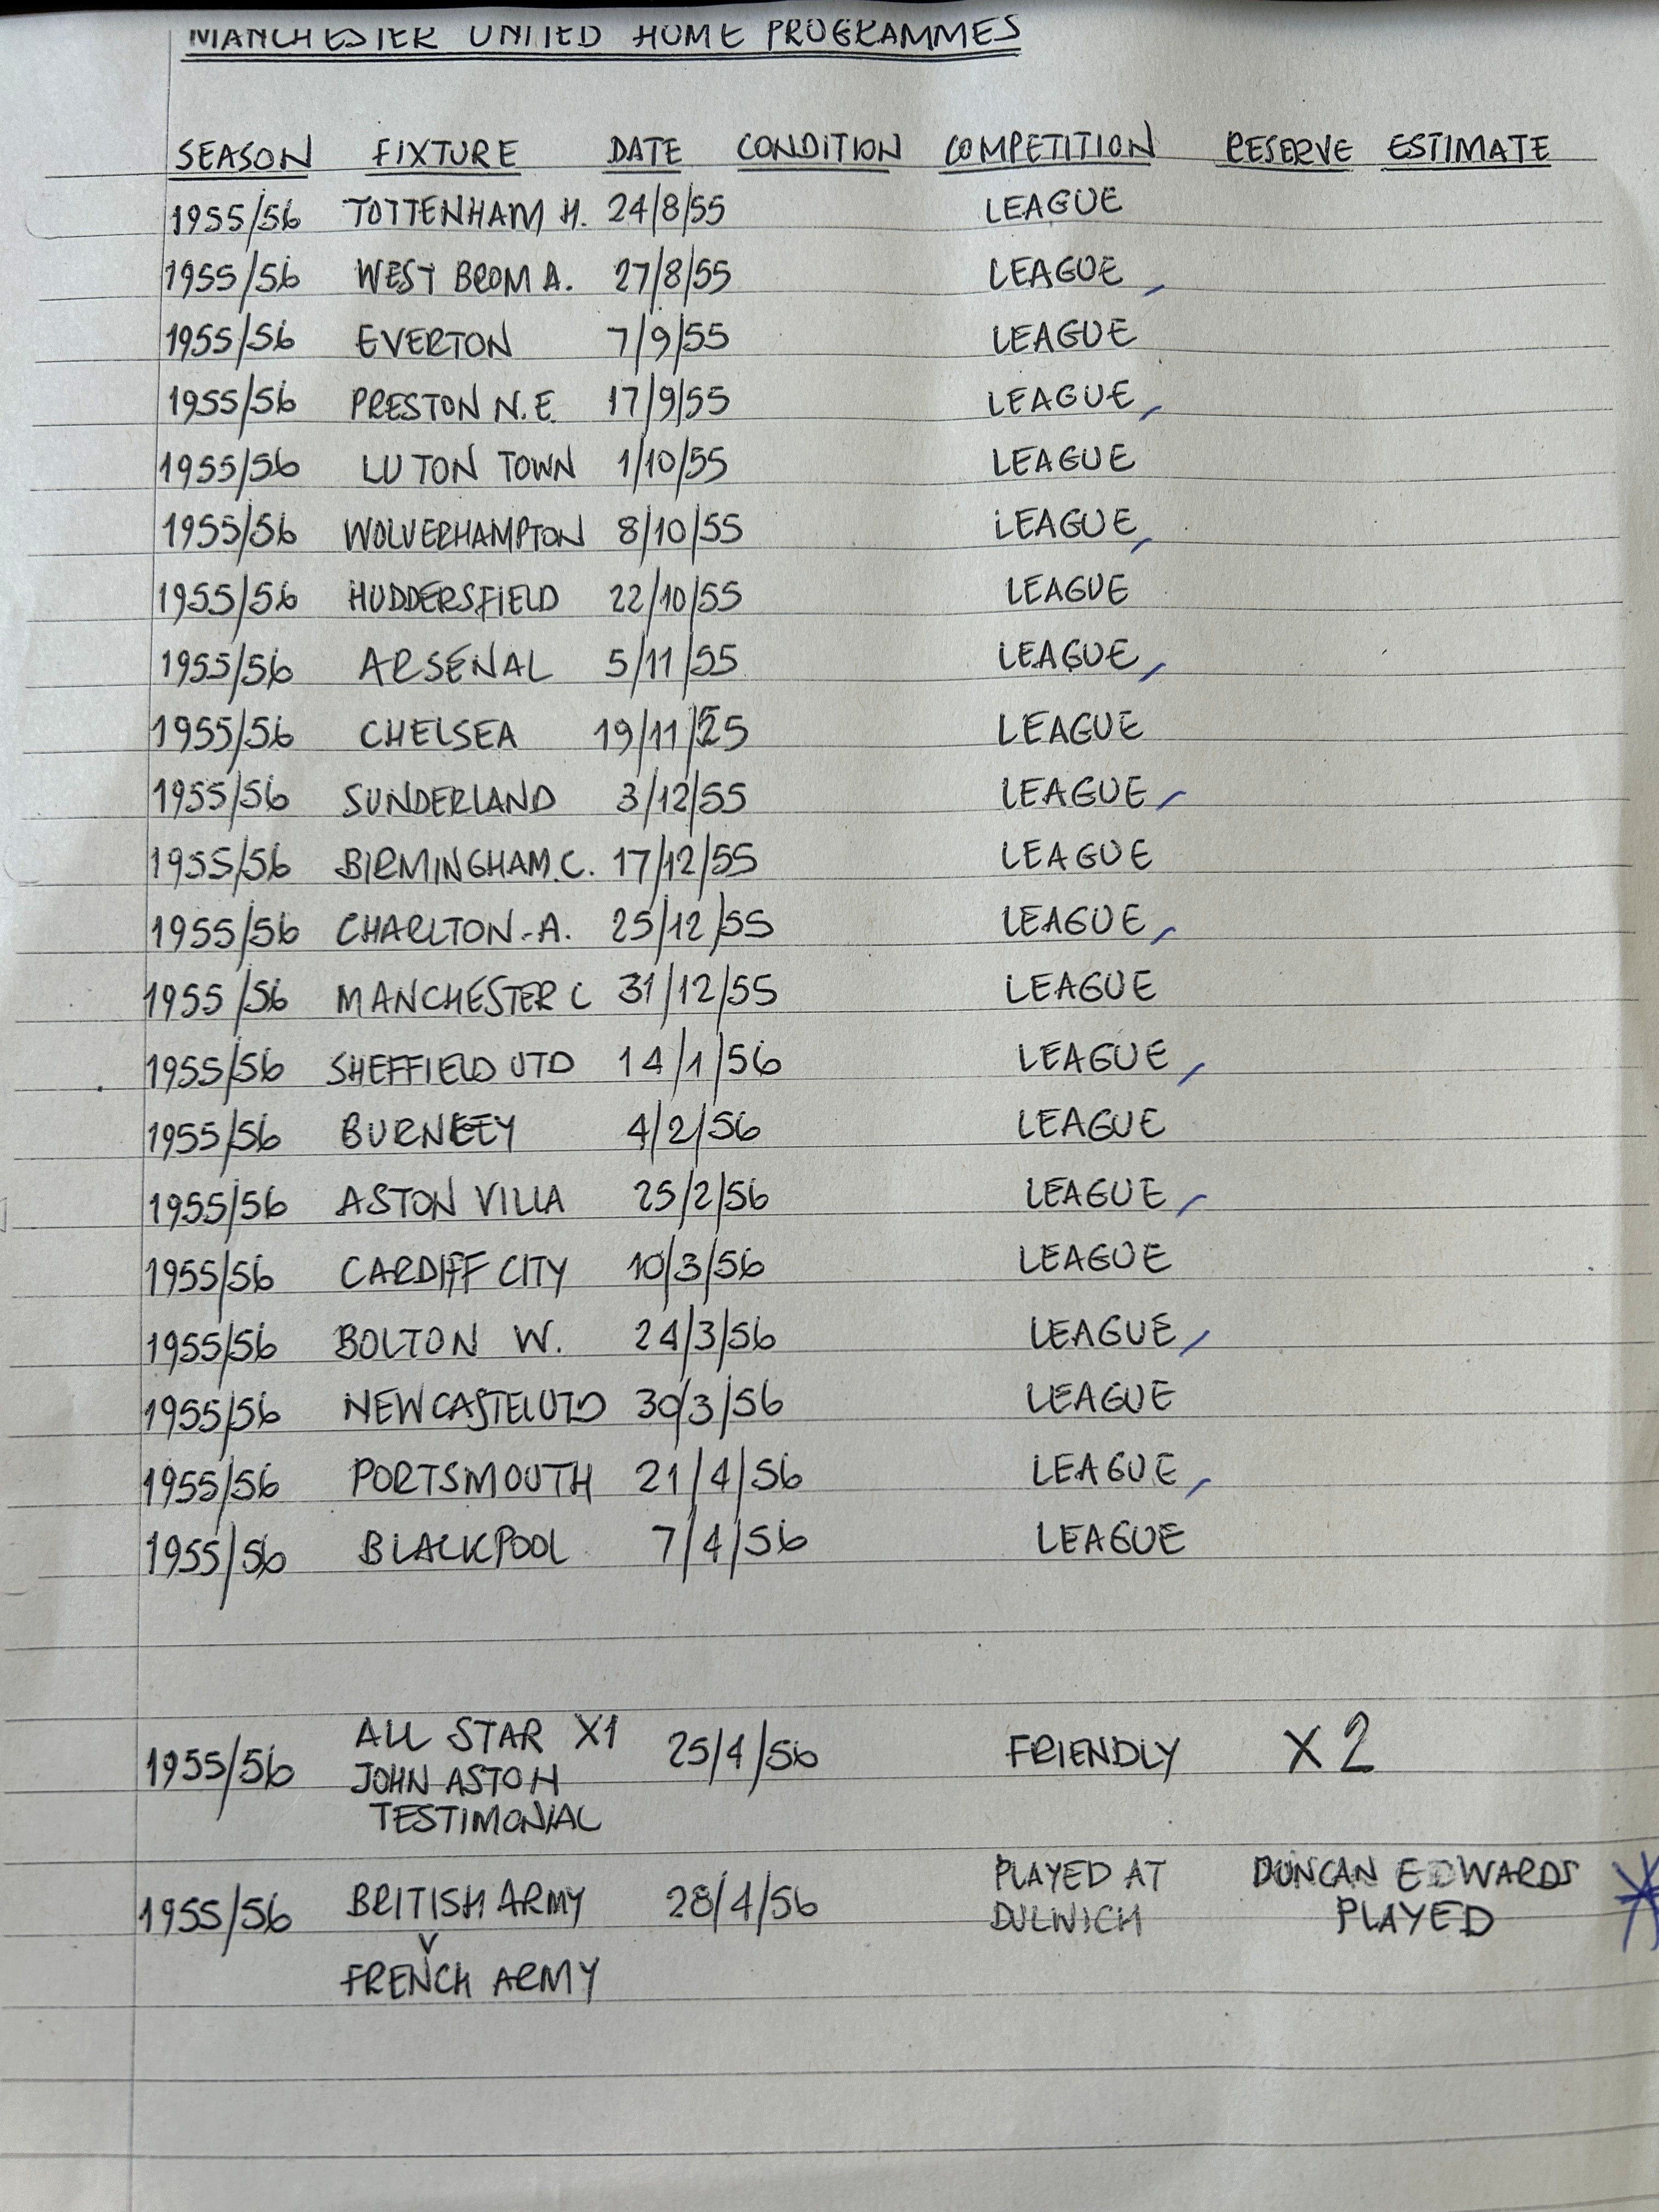 MANCHESTER UNITED HOME PROGRAMMES
SEASON FIXTURE DATE CONDITION COMPETITION RESERVE ESTIMATE
1955/56 TOTTENHAM H. 24/8/55 LEAGUE
1955/56 WEST BROM A. 27/8/55 LEAGUE
1955/56 EVERTON 7/9/55 LEAGUE
1955/56 PRESTON N.E. 17/9/55 LEAGUE
1955/56 LUTON TOWN 1/10/55 LEAGUE
1955/56 WOLVERHAMPTON 8/10/55 LEAGUE
1955/56 HUDDERSFIELD 22/10/55 LEAGUE
1955/56 ARSENAL 5/11/55 LEAGUE
1955/56 CHELSEA 19/11/55 LEAGUE
1955/56 SUNDERLAND 3/12/55 LEAGUE
1955/56 BIRMINGHAM.C. 17/12/55 LEAGUE
1955/56 CHARLTON-A. 25/12/55 LEAGUE
1955/56 MANCHESTER C 31/12/55 LEAGUE
1955/56 SHEFFIELD UTD 14/1/56 LEAGUE
1955/56 BURNLEY 4/2/56 LEAGUE
1955/56 ASTON VILLA 25/2/56 LEAGUE
1955/56 CARDIFF CITY 10/3/56 LEAGUE
1955/56 BOLTON W. 24/3/56 LEAGUE
1955/56 NEWCASTEL UTD 30/3/56 LEAGUE
1955/56 PORTSMOUTH 21/4/56 LEAGUE
1955/56 BLACKPOOL 7/4/56 LEAGUE
1955/56 ALL STAR X1 25/4/56 FRIENDLY X2
JOHN ASTON
TESTIMONIAL
1955/56 BRITISH ARMY 28/4/56 PLAYED AT DUNCAN EDWARDS
V DULWICH PLAYED
FRENCH ARMY